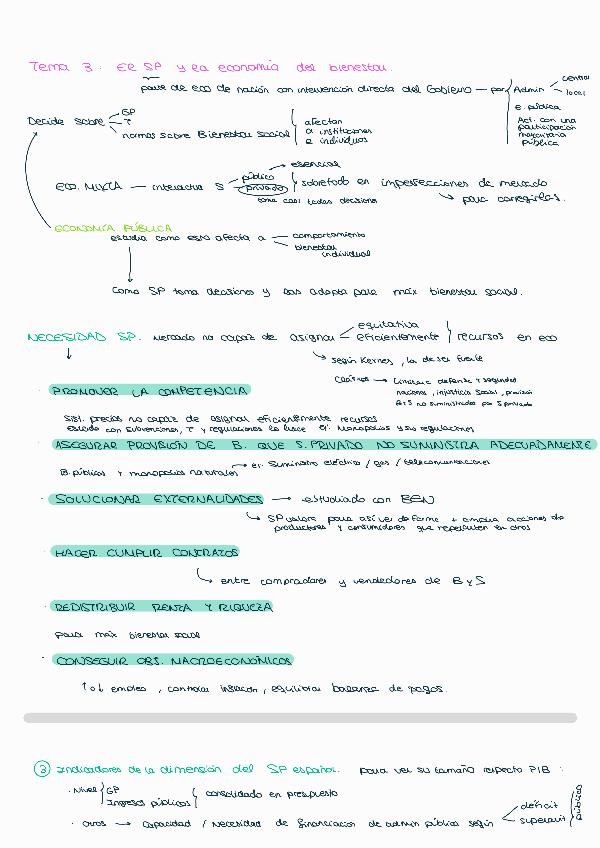 Tema 3: El SP y la economía del bienestar.
parte de eco de nación con intervención directa del Gobierno — por Admin central
local
e. pública
Act. con una participación mayoritaria pública
Decide sobre GP
T
normas sobre Bienestar social
afectan a instituciones e individuos
esencial
ECO. MIXTA — interactúa S público
privado
sobretodo en imperfecciones de mercado
toma casi todas decisiones
para corregirlas.
ECONOMÍA PÚBLICA
estudia como esto afecta a comportamiento
bienestar individual
Como SP toma decisiones y las adapta para máx bienestar social.
NECESIDAD SP. Mercado no capaz de asignar equitativa
eficientemente recursos en eco
según Keynes, la de ser fuerte
Clásicos → limitarse defensa y seguridad
naciones, injusticia social, provisión
ByS no suministrados por S privado
· PROMOVER LA COMPETENCIA
Sist. precios no capaz de asignar eficientemente recursos
estado con subvenciones, T y regulaciones lo hace ej: Monopolios y su regulaciones
· ASEGURAR PROVISIÓN DE B. QUE S. PRIVADO NO SUMINISTRA ADECUADAMENTE
B. públicos y monopolios naturales → ej: Suministro eléctrico / gas / telecomunicaciones
· SOLUCIONAR EXTERNALIDADES → estudiado con BEN
SP valora para así ver de forma + amplia acciones de
productores y consumidores que repercuten en otros
· HACER CUMPLIR CONTRATOS
entre compradores y vendedores de B y S
· REDISTRIBUIR RENTA Y RIQUEZA
para máx bienestar social
· CONSEGUIR OBJ. MACROECONÓMICOS
↑o↓ empleo, controlar inflación, equilibrar balanza de pagos.
③ Indicadores de la dimensión del SP español. para ver su tamaño respecto PIB:
· Nivel GP
Ingresos públicos
consolidado en presupuesto
· Otros → Capacidad / Necesidad de financiación de admin pública según déficit
superavit
públicos